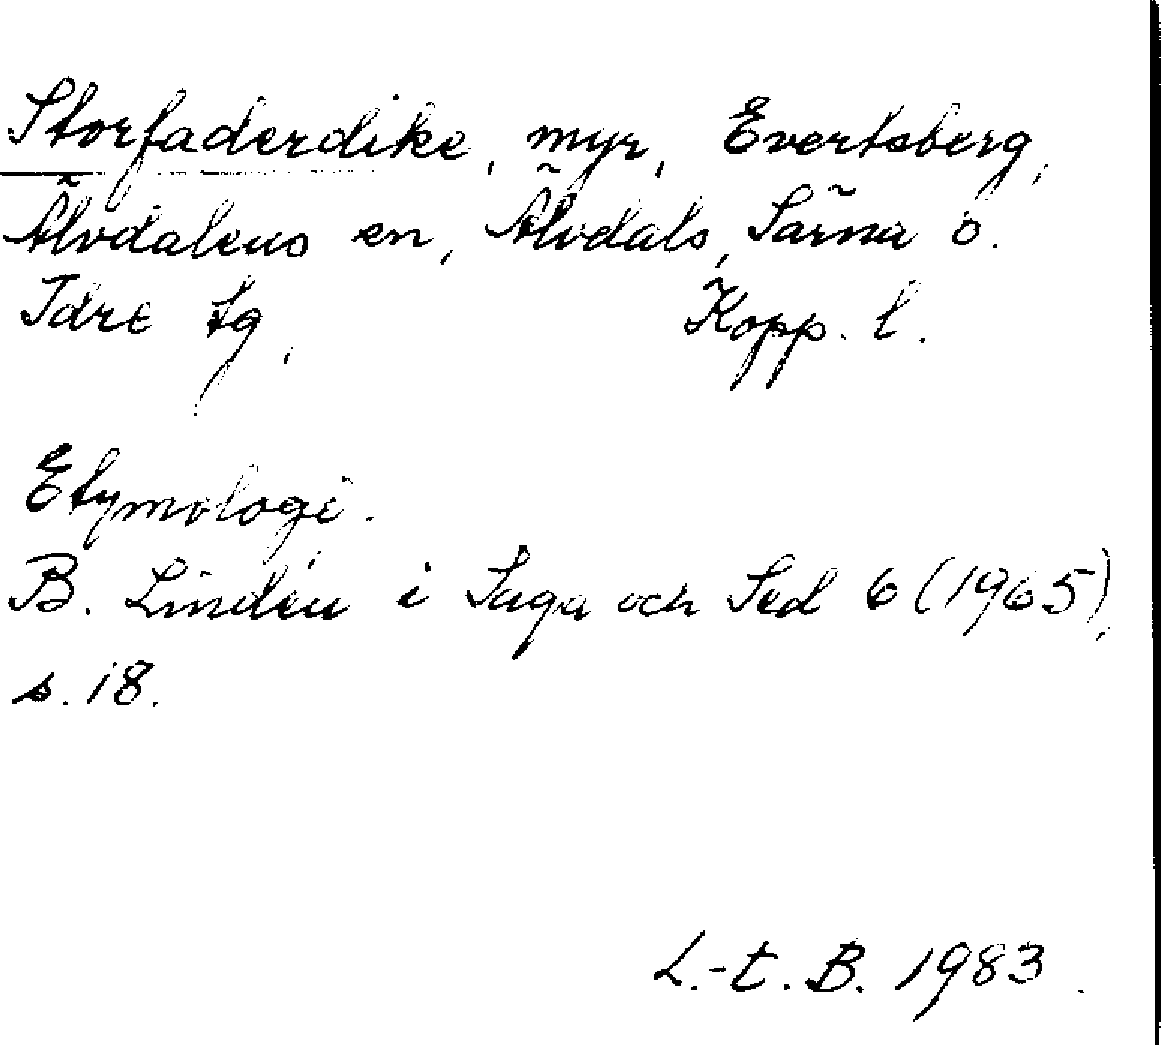 Storfaderdike, myr, Evertsberg,
Älvdalens en, Älvdals, Särna o.
Idre tg, Kopp. l.
Etymologi.
B. Lindén i Saga och Sed 6 (1965),
s. 18.
L.-t. B. 1983.